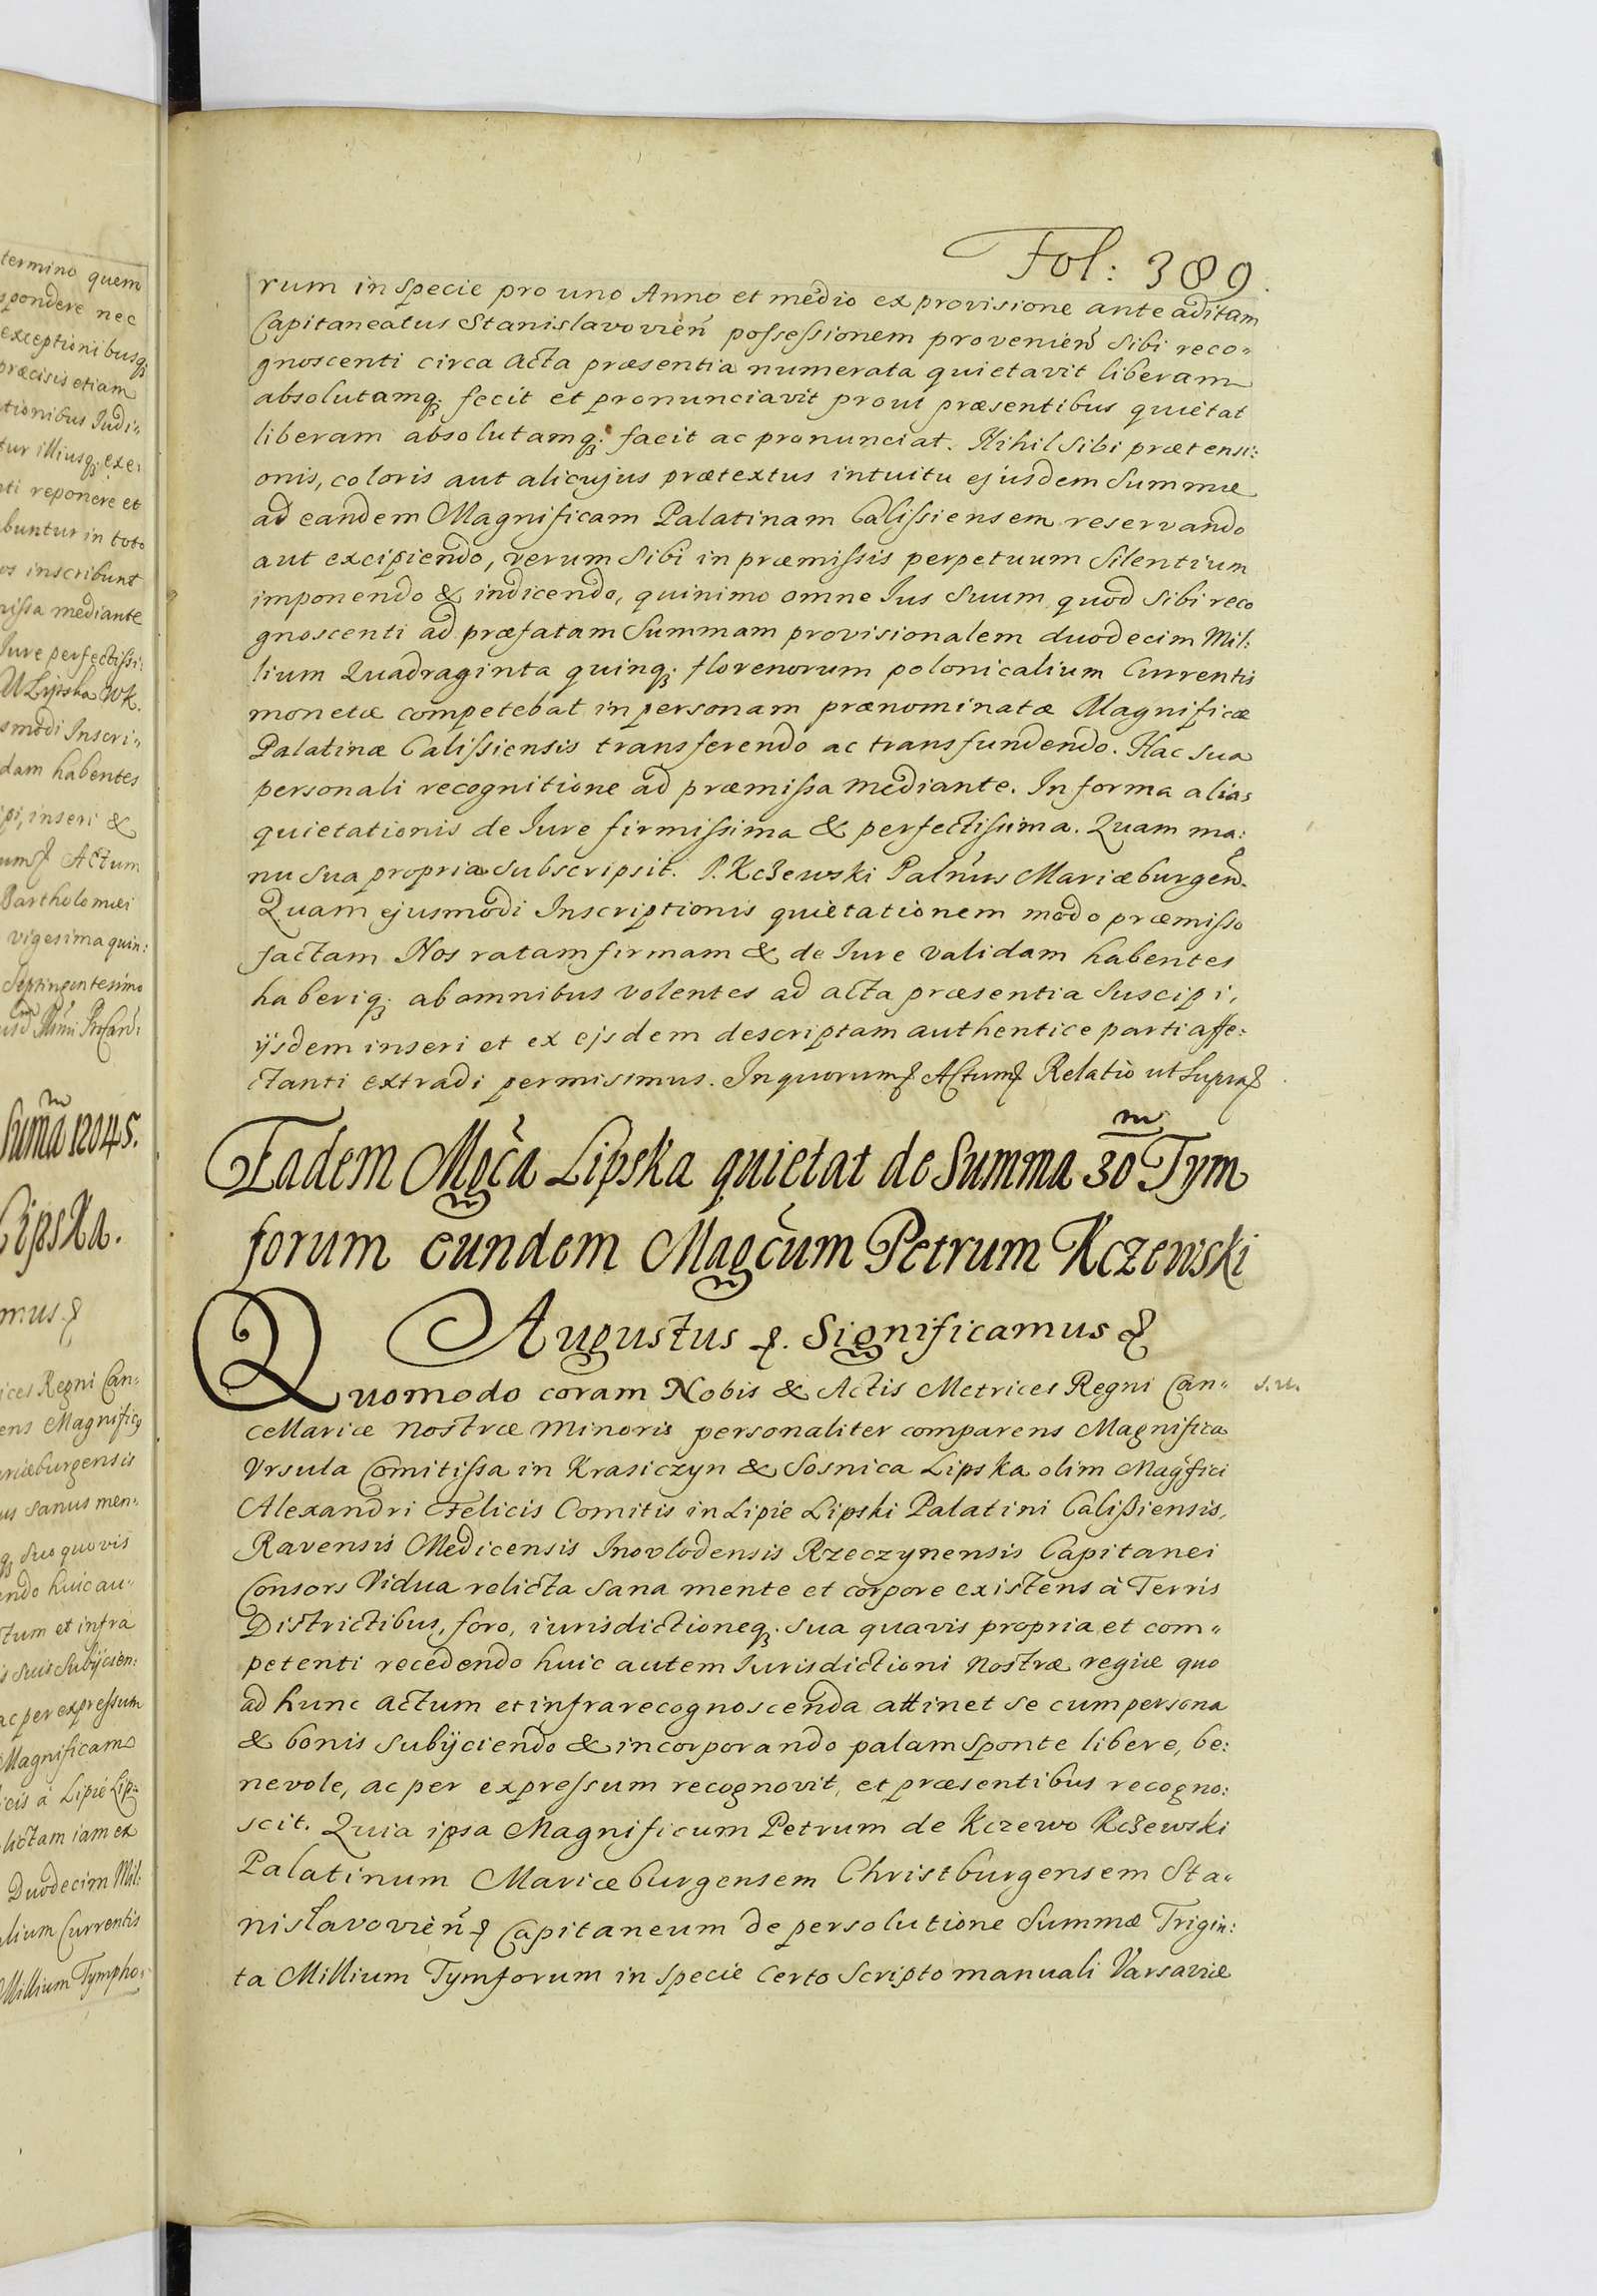 termino quem
spondere nec
exceptionibusq;
præcisis etiam
tionibus Judi„
tur illiusq; exe:
nti reponere et
buntur in toto
os inscribunt
missa mediante
Jure perfectissi:
U Lipska WK.
smodi Inscri„
dam habentes
pi, inseri &
Actum
Bartholomæi
vigesima quin:
Septingentesimo
Suma 12045.
Lipska.
mus
ices Regni Can:
ens Magnificus
riæburgensis
us sanus men:
q; suo quovis
endo huic au„
ctum et infra
is suis subijcien:
ac per expressum
Magnificam
icis à Lipie Lip:
lictam iam ex
Duodecim Mil:
lium Currentis
Millium Tympho:
Fol: 389.
rum in specie pro uno Anno et medio ex provisione ante aditam
Capitaneatus Stanislavovien̄ possessionem provenien̄ sibi reco„
gnoscenti circa acta præsentia numerata quietavit liberam
absolutamq; fecit et pronunciavit prout præsentibus quietat
liberam absolutamq; facit ac pronunciat. Nihil sibi prætensi:
onis, coloris aut alicujus prætextus intuitu ejusdem Summæ
ad eandem Magnificam Palatinam Calissiensem reservando
aut excipiendo, verum sibi in præmissis perpetuum Silentium
imponendo & indicendo, quinimo omne Jus Suum quod sibi reco
gnoscenti ad præfatam Summam provisionalem duodecim Mil:
lium Quadraginta quinq; florenorum polonicalium Currentis
monetæ competebat in personam prænominatæ Magnificæ
Palatinæ Calissiensis transferendo ac transfundendo. Hac sua
personali recognitione ad præmissa mediante. In forma alias
quietationis de Jure firmissima & perfectissima. Quam ma:
nu sua propria subscripsit. P. Kczewski Palnūs Mariæburgen̄.
Quam ejusmodi Inscriptionis quietationem modo præmisso
factam Nos ratam firmam & de Jure validam habentes
haberiq; ab omnibus volentes ad acta præsentia suscipi,
ijsdem inseri et ex ejsdem descriptam authentice parti affe:
ctanti extradi permisimus. In quorum Actum Relatio ut supra
Eadem Mgc̄a Lipska quietat de Summa 30 m Tym
forum eundem Magc̄um Petrum Kczewski
Augustus Significamus
Quomodo coram Nobis & Actis Metrices Regni Can„ s.u.
cellariæ nostræ Minoris personaliter comparens Magnifica
Vrsula Comitissa in Krasiczyn & Sosnica Lipska olim Magfici
Alexandri Felicis Comitis in Lipie Lipski Palatini Calissiensis,
Ravensis Medicensis Inovlodensis Rzeczynensis Capitanei
Consors Vidua relicta sana mente et corpore existens à Terris
Districtibus, foro, iurisdictioneq; sua quavis propria et com„
petenti recedendo huic autem Iurisdictioni Nostræ regiæ quo
ad hunc actum et infra recognoscenda attinet se cum persona
& bonis subijciendo & incorporando palam sponte libere, be:
nevole, ac per expressum recognovit, et præsentibus recogno:
scit. Quia ipsa Magnificum Petrum de Kczewo Kczewski
Palatinum Mariæburgensem Christburgensem Sta„
nislavovien̄ Capitaneum de persolutione Summæ Trigin:
ta Millium Tymforum in specie certo scripto manuali Varsaviæ